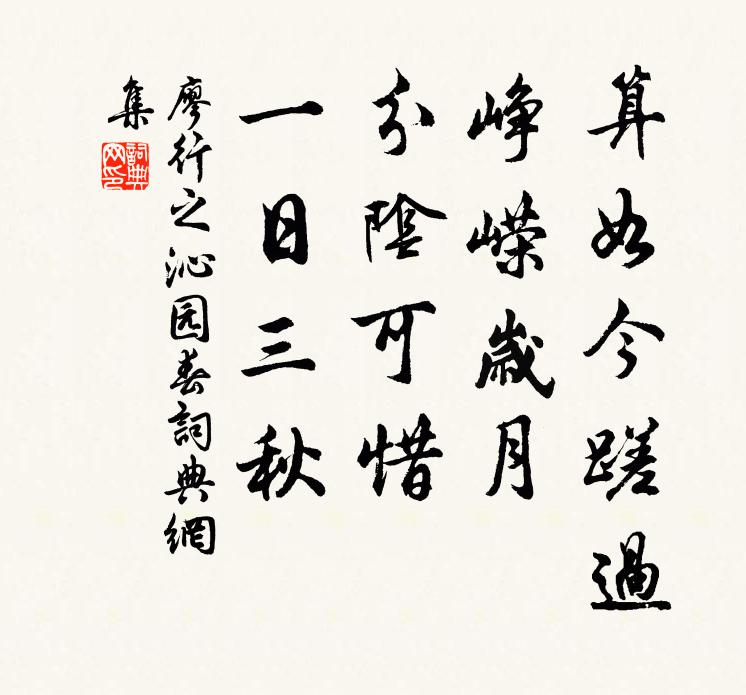 算如今蹉過
崢嶸歲月
分陰可惜
一日三秋
廖行之沁园春詞典網
集
詞典網印